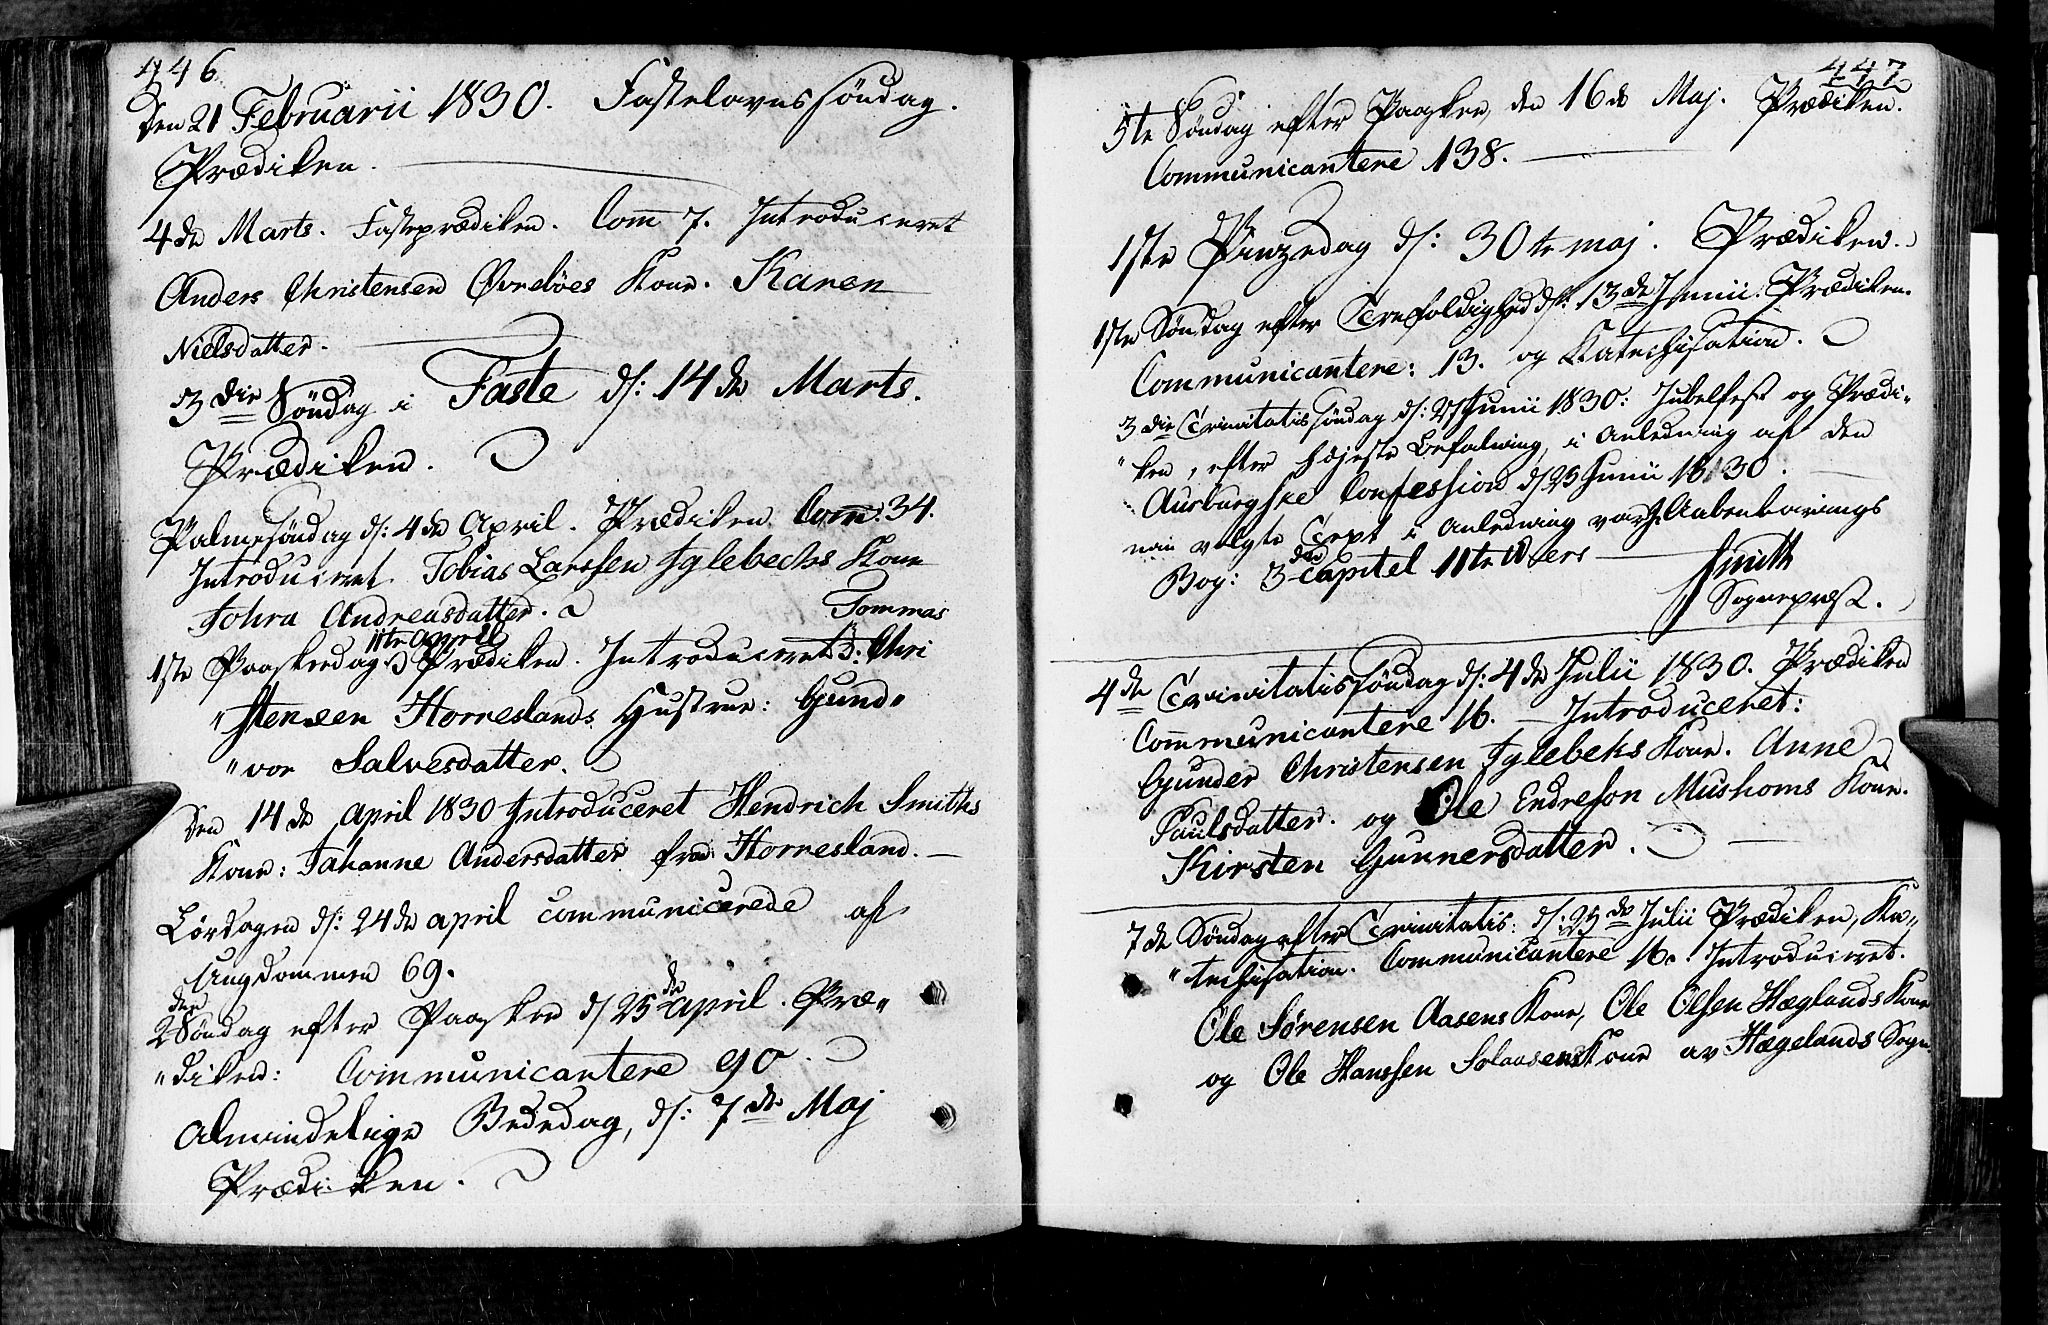 446
Den 21 Februarii 1830. Fastelavnssöndag.
Prædiken.
4de Marts. Fasteprædiken. Com 7. Introduceret
Anders Christensen Øvreböes Kone. Karen
Nielsdatter.
3die Söndag i Faste d: 14de Marts.
Prædiken.
Palmesöndag d: 4de April. Prædiken. Com. 34.
Introduceret Tobias Larssen Iglebechs Kone
Johra Andreasdatter.
Tommas
11te April
1ste Paaskedag Prædiken. Introduceret Chri
"stensen Horreslands Hustrue: Gund"
"vor Salvesdatter.
Den 14de April 1830 Introduceret Hendrich Smiths
Kone: Johanne Andersdatter fra Horresland.
Lördagen d: 24de april communicerede af
Ungdommen 69.
2den Söndag efter Paaske d 25de april. Præ"
"diken: Communicantere 90.
Almindelige Bededag, d: 7de Maj
Prædiken.
447
5te Söndag efter Paaske, den 16de Maj. Prædiken.
Communicantere 138.
1ste Pinzedag d: 30te maj. Prædiken.
1ste Söndag efter Trefoldighed d: 13de Junii. Prædiken.
Communicantere: 13. og Katechisation.
3die Trinitatissöndag d: 27 Junii 1830: Jubelfest og Prædi"
"ken, efter højeste Befalning, i Anledning af den
Ausburgske Confession d 25 Junii 1830.
valgte Text i Anledning var J. Aabenbarings
Bog: 3die Capitel 11te Vers
Smith
Sognepræst.
4de Trinitatissöndag d: 4de Julii 1830. Prædiken
Communicantere 16. Introduceret:
Gunder Christensen Iglebeks Kone. Anne
Paulsdatter. og Ole Endreson Mushoms Kone.
Kirsten Gunnersdatter.
7de Söndag efter Trinitatis: d: 25de Julii Prædiken, Ka"
"techisation. Communicantere 16. Introduceret.
Ole Sørensen Aasens Kone, Ole Olsen Hæglands Kone
og Ole Hanssen Solaasens Kone av Hægelands Sogn.